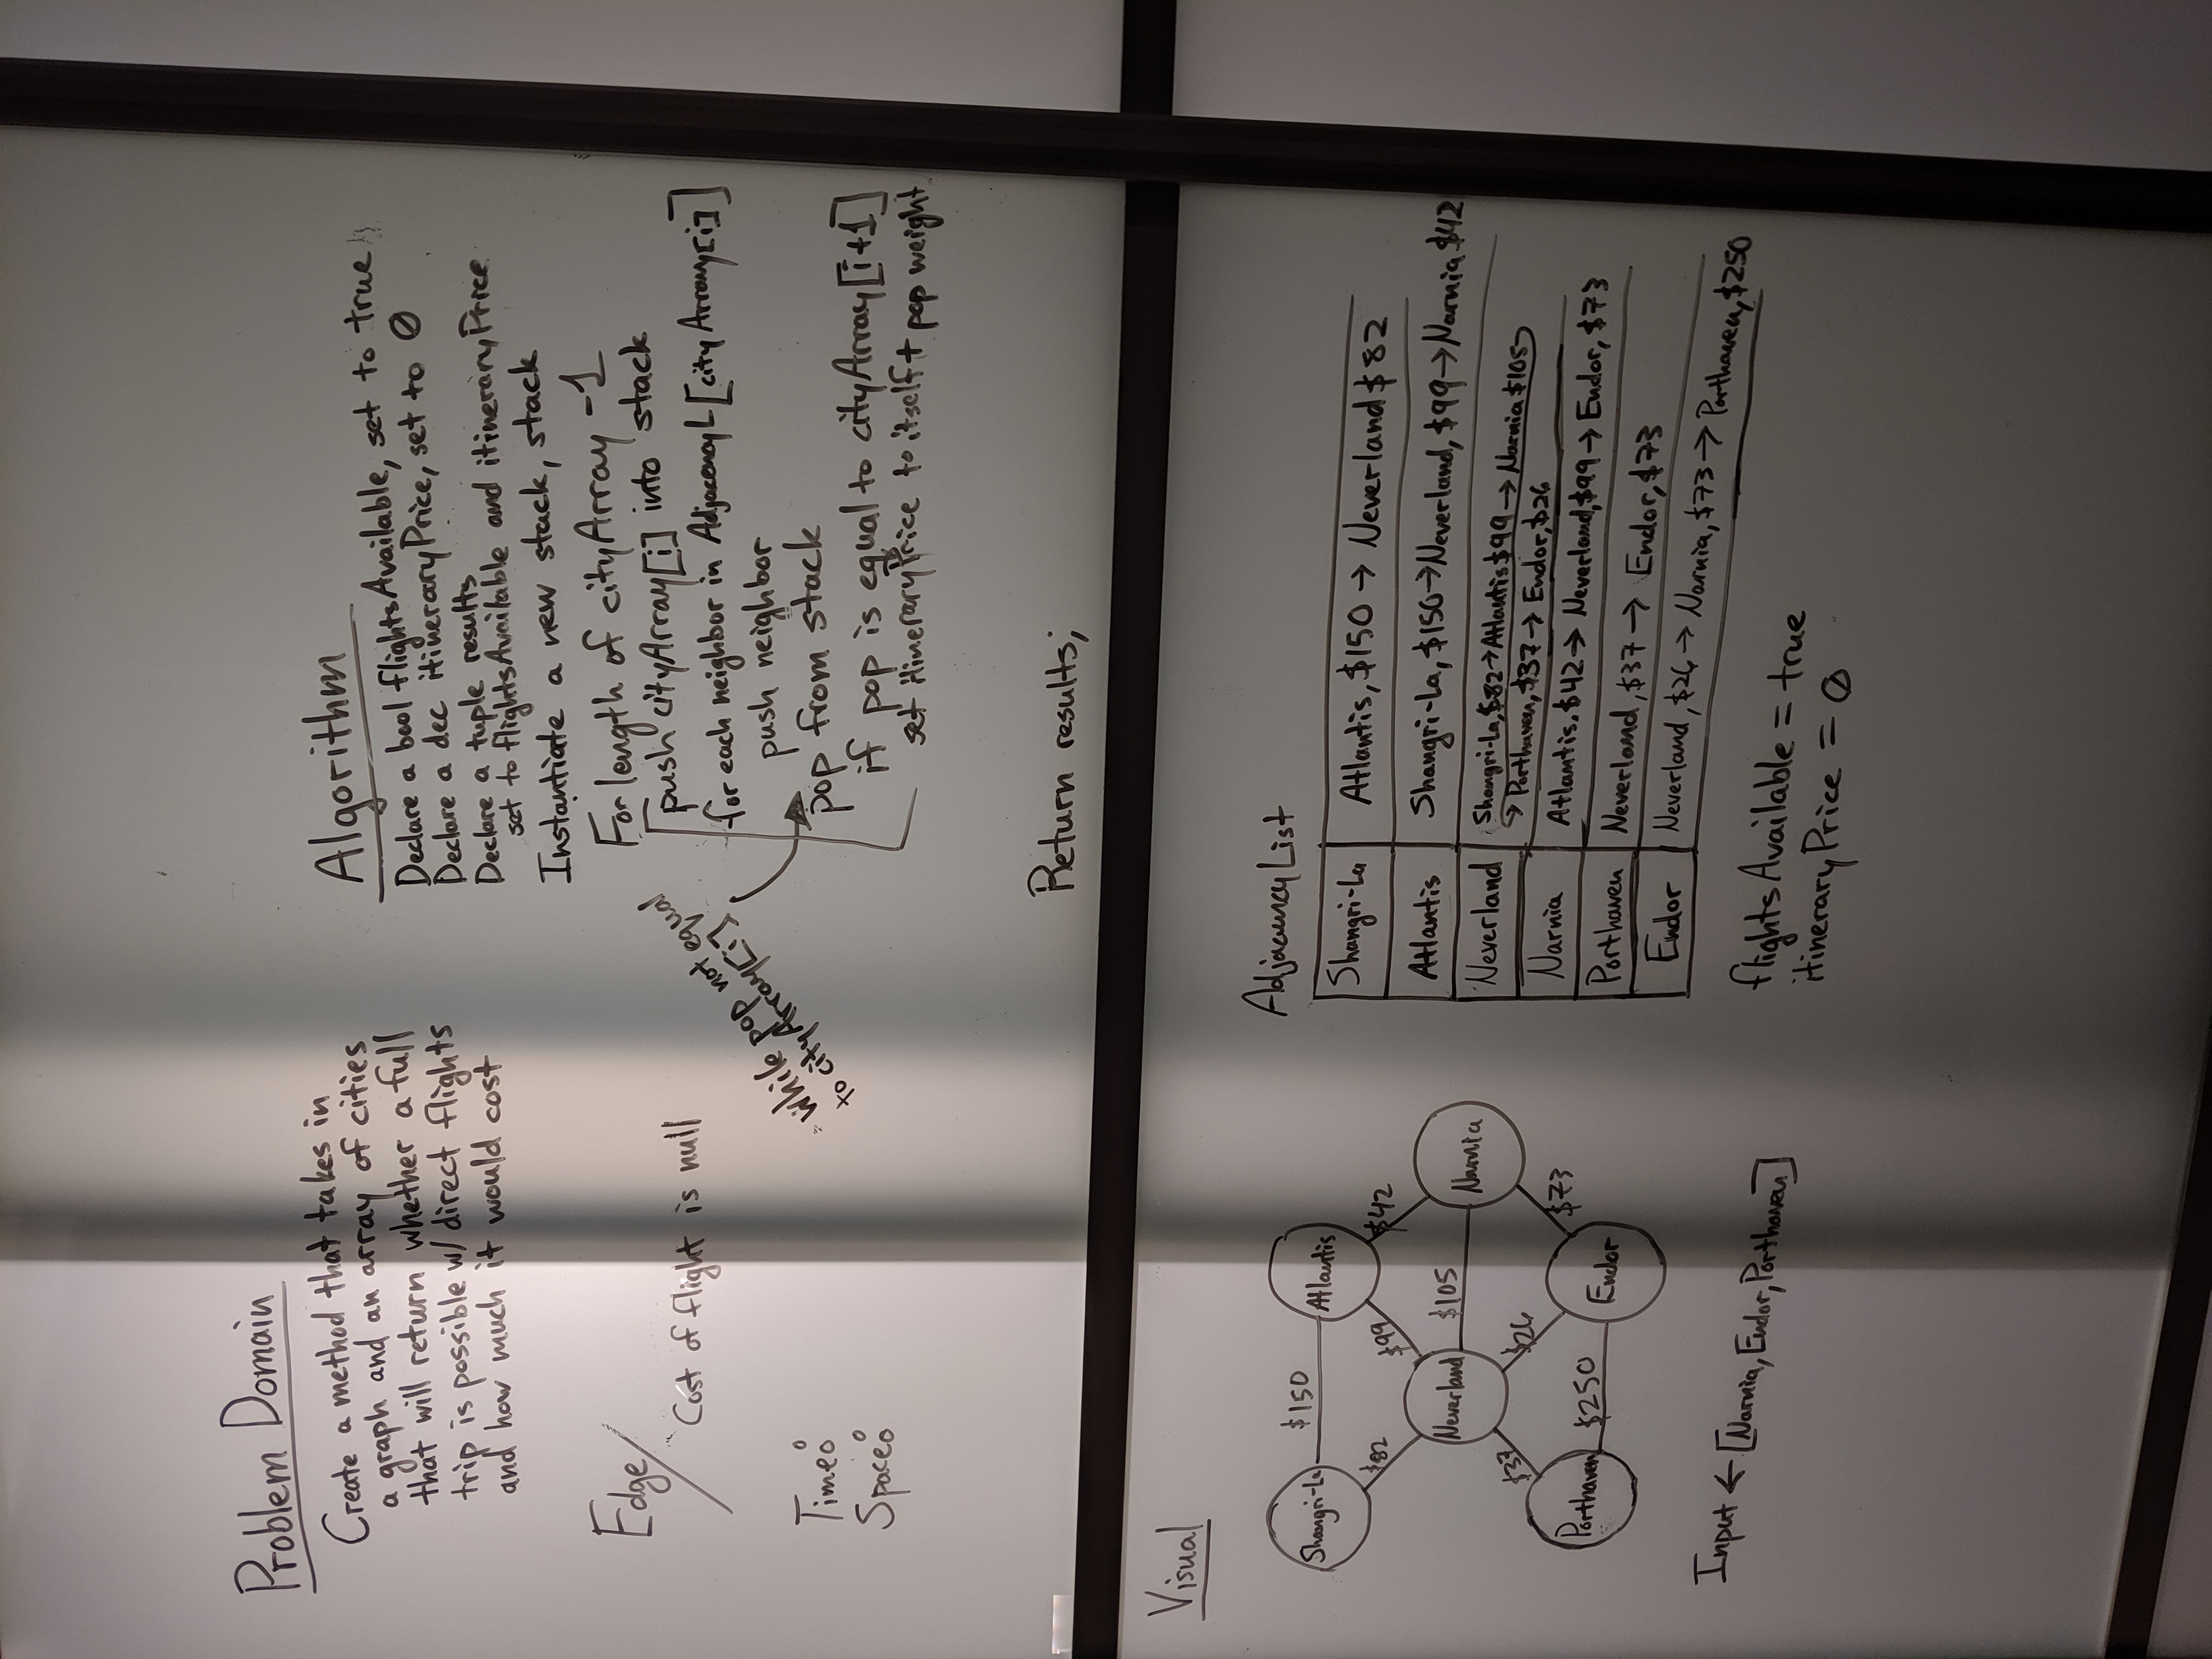 Problem Domain
Create a method that takes in
a graph and an array of cities
that will return whether a full
trip is possible w/ direct flights
and how much it would cost
Edge
Cost of flight is null
Time:
Space:
Algorithm
Declare a bool flightsAvailable, set to true
Declare a dec itineraryPrice, set to 0
Declare a tuple results
set to flightsAvailable and itineraryPrice
Instantiate a new stack, stack
For length of cityArray -1
push cityArray[i] into stack
for each neighbor in AdjacencyL[cityArray[i]]
push neighbor
while pop not equal
to cityArray[i]
pop from stack
if pop is equal to cityArray[i+1]
set itineraryPrice to itself + pop weight
Return results;
Visual
Shangri-La
$150
Atlantis
$82
$99
$42
Neverland
$105
Narnia
$37
$26
$73
Porthaven
$250
Endor
Input ← [Narnia, Endor, Porthaven]
AdjacencyList
Shangri-La Atlantis, $150 → Neverland $82
Atlantis Shangri-La, $150 → Neverland, $99 → Narnia $42
Neverland Shangri-La, $82 → Atlantis $99 → Narnia $105
→ Porthaven, $37 → Endor, $26
Narnia Atlantis, $42 → Neverland, $99 → Endor, $73
Porthaven Neverland, $37 → Endor, $73
Endor Neverland, $26 → Narnia, $73 → Porthaven, $250
flightsAvailable = true
itineraryPrice = 0